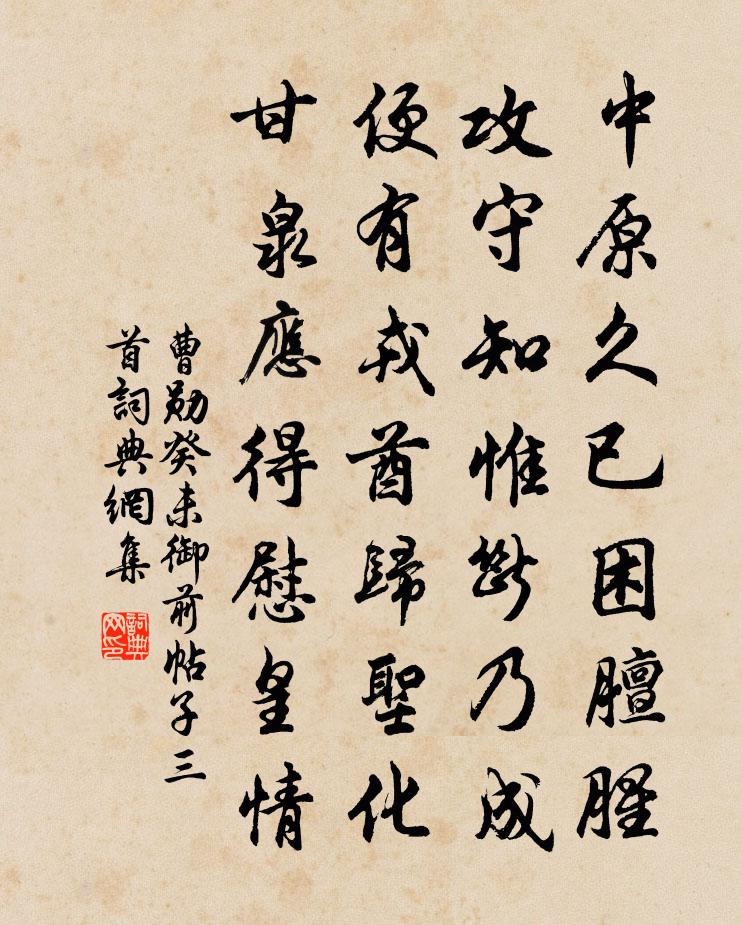 中原久已困膻腥
攻守知惟斷乃成
便有戎酋歸聖化
甘泉應得慰皇情
曹勛癸未御前帖子三
首詞典網集
詞典
网印